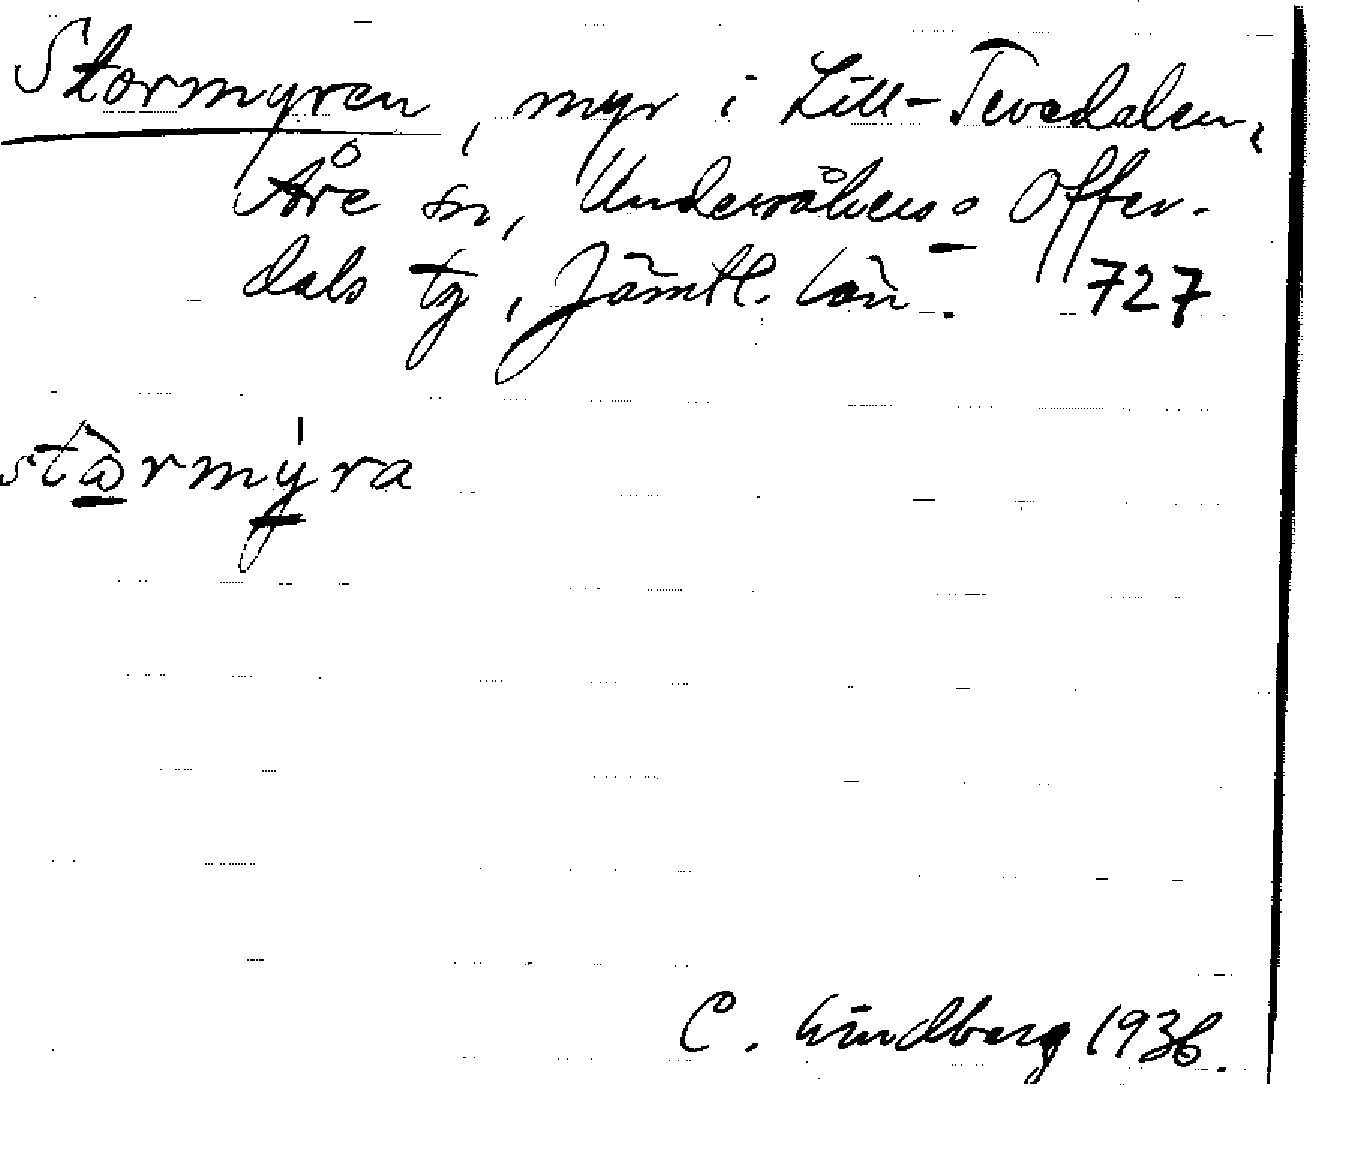 Stormyren, myr i Lill-Tevedalen,
Åre sn, Undersåkers o Offer-
dals tg, Jämtl. län. 727
stårmy̱ra
C. Lindberg 1936.